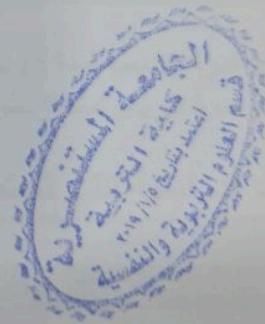 الجامعة المستنصرية
كلية التربية
اعتمد بتاريخ ٢٠١٩/١/٥
قسم العلوم التربوية والنفسية